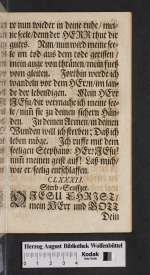 er nun wieder in deine ruhe / mei-
ne seele / denn der HERR thut dir
gutes. Nun / nun wird meine see-
le im tod aus dem tode gerissen /
mein auge von thränen / mein fuß
vom gleiten. Forthin werde ich
wandeln vor dem HErrn / im lan-
de der lebendigen. Mein HErr
JEsu / dir vermache ich meine see-
le / nim sie zu deinen sichern Hän-
den. In deinen Armen / in deinen
Wunden will ich sterben; Daß ich
leben möge. Ich ruffe mit dem
seeligen Stephano: HErr JEsu!
nimm meinen geist auf! Laß mich /
wie er / seelig entschlaffen.
CLXXXII.
Sterb-Seuffzer.
O JESU CHRIST /
mein HErr und GOTT
Dein
Herzog August Bibliothek Wolfenbüttel
Kodak